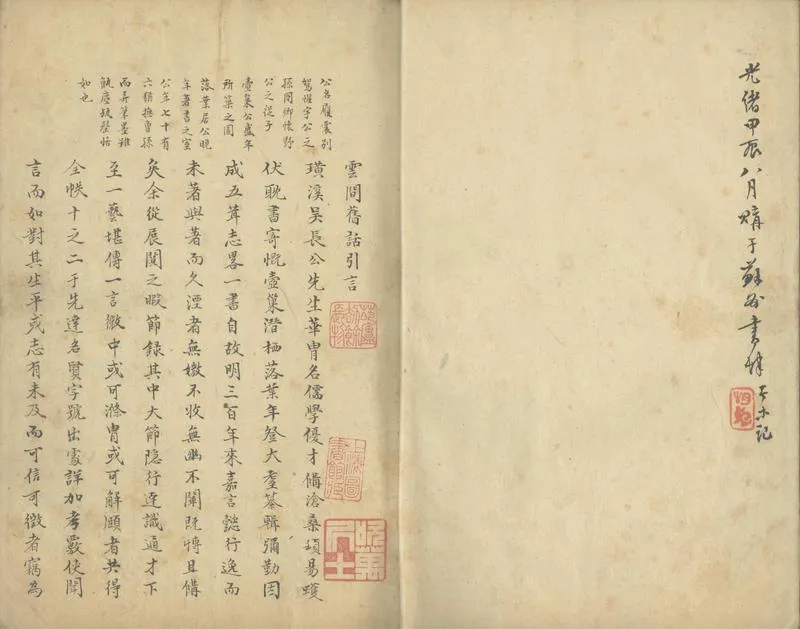 光緒甲辰八月購于蘇州書肆
木記
公名履震別
駕惺宇公之
孫同卿懷野
公之從子
壺巢公盛年
所築之園
落葉居公晚
年著書之室
公年七十有
六猶撫曾孫
而弄筆墨雖
塵罄怡
如也
雲間舊話引言
璜溪吳長公先生華胄名儒學優才備滄桑頓易蠖
伏耽書寄慨壺巢潛栖落葉年登大耋纂輯彌勤因
成五茸志畧一書自故明三百年來嘉言懿行逸而
未著與著而久湮者無媺不收無幽不闡既博且備
矣余從展閱之暇節錄其中大節隱行達識通才下
至一藝堪傳一言微中或可滌胃或可解頤者共得
全帙十之二于先達名賢字號出處詳加考覈使聞
言而如對其生平或志有未及而可信可徵者竊為
上海圖
書館藏